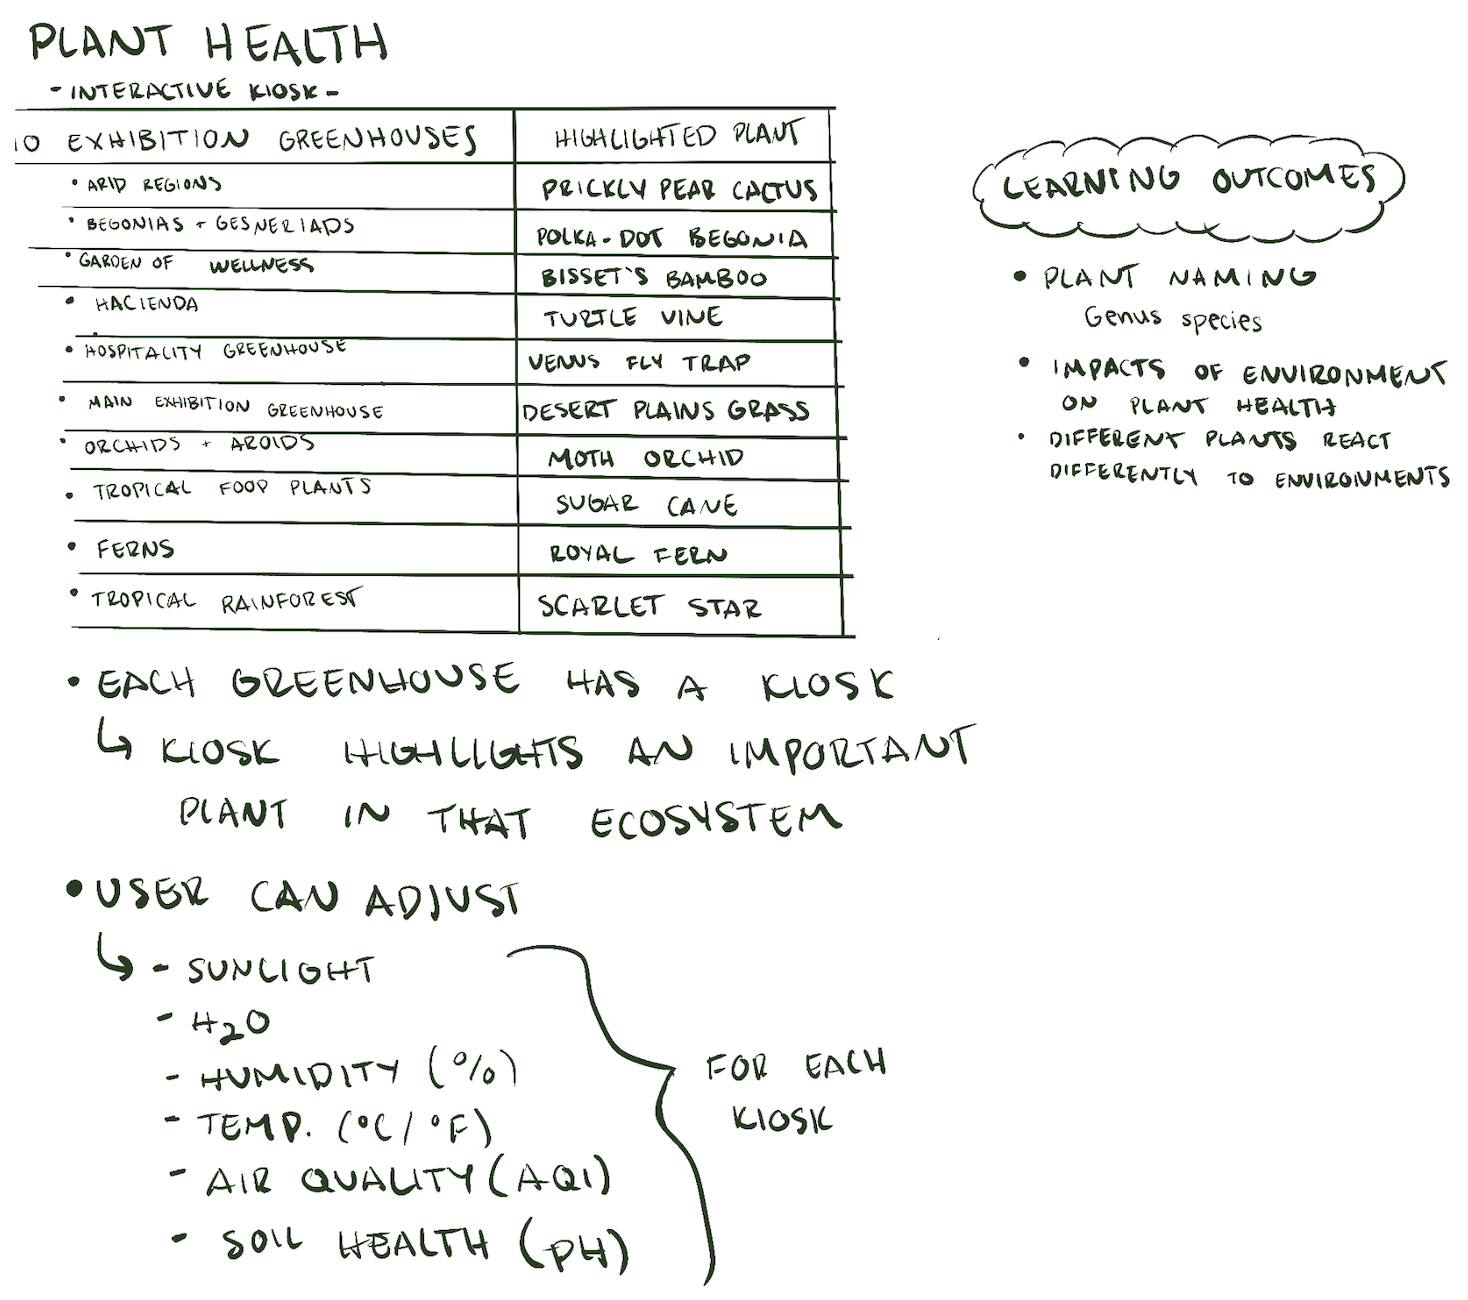 PLANT HEALTH
- INTERACTIVE KIOSK -
10 EXHIBITION GREENHOUSES HIGHLIGHTED PLANT
• ARID REGIONS PRICKLY PEAR CACTUS
• BEGONIAS + GESNERIADS POLKA-DOT BEGONIA
• GARDEN OF WELLNESS BISSET'S BAMBOO
• HACIENDA TURTLE VINE
• HOSPITALITY GREENHOUSE VENUS FLY TRAP
• MAIN EXHIBITION GREENHOUSE DESERT PLAINS GRASS
• ORCHIDS + AROIDS MOTH ORCHID
• TROPICAL FOOD PLANTS SUGAR CANE
• FERNS ROYAL FERN
• TROPICAL RAINFOREST SCARLET STAR
LEARNING OUTCOMES
• PLANT NAMING
Genus species
• IMPACTS OF ENVIRONMENT
ON PLANT HEALTH
• DIFFERENT PLANTS REACT
DIFFERENTLY TO ENVIRONMENTS
• EACH GREENHOUSE HAS A KIOSK
↳ KIOSK HIGHLIGHTS AN IMPORTANT
PLANT IN THAT ECOSYSTEM
• USER CAN ADJUST
↳ - SUNLIGHT
- H2O
- HUMIDITY (%)
- TEMP. (°C/°F)
- AIR QUALITY (AQI)
- SOIL HEALTH (PH)
FOR EACH
KIOSK